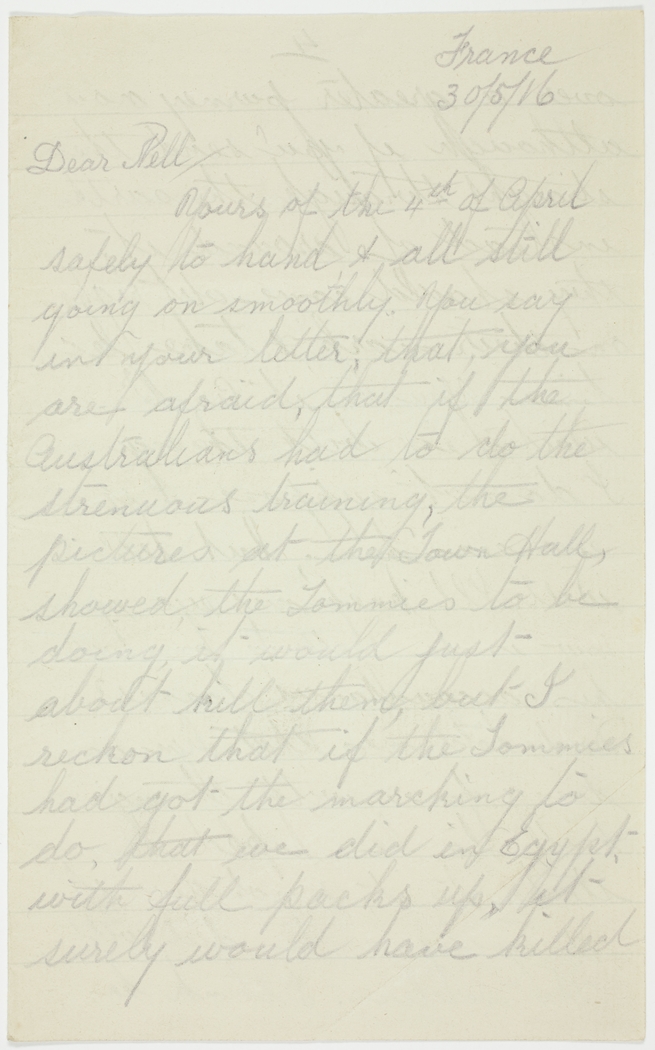 France
30/5/16
Dear Nell
Yours of the 4th of April
safely to hand, & all still
going on smoothly. You say
in your letter, that, you
are afraid, that if the
Australians had to do the
strenuous training, the
pictures at the Town Hall,
showed, the Tommies to be
doing, it would just
about kill them, but I
reckon that if the Tommies
had got the marching to
do, that we did in Egypt,
with full packs up, it
surely would have killed